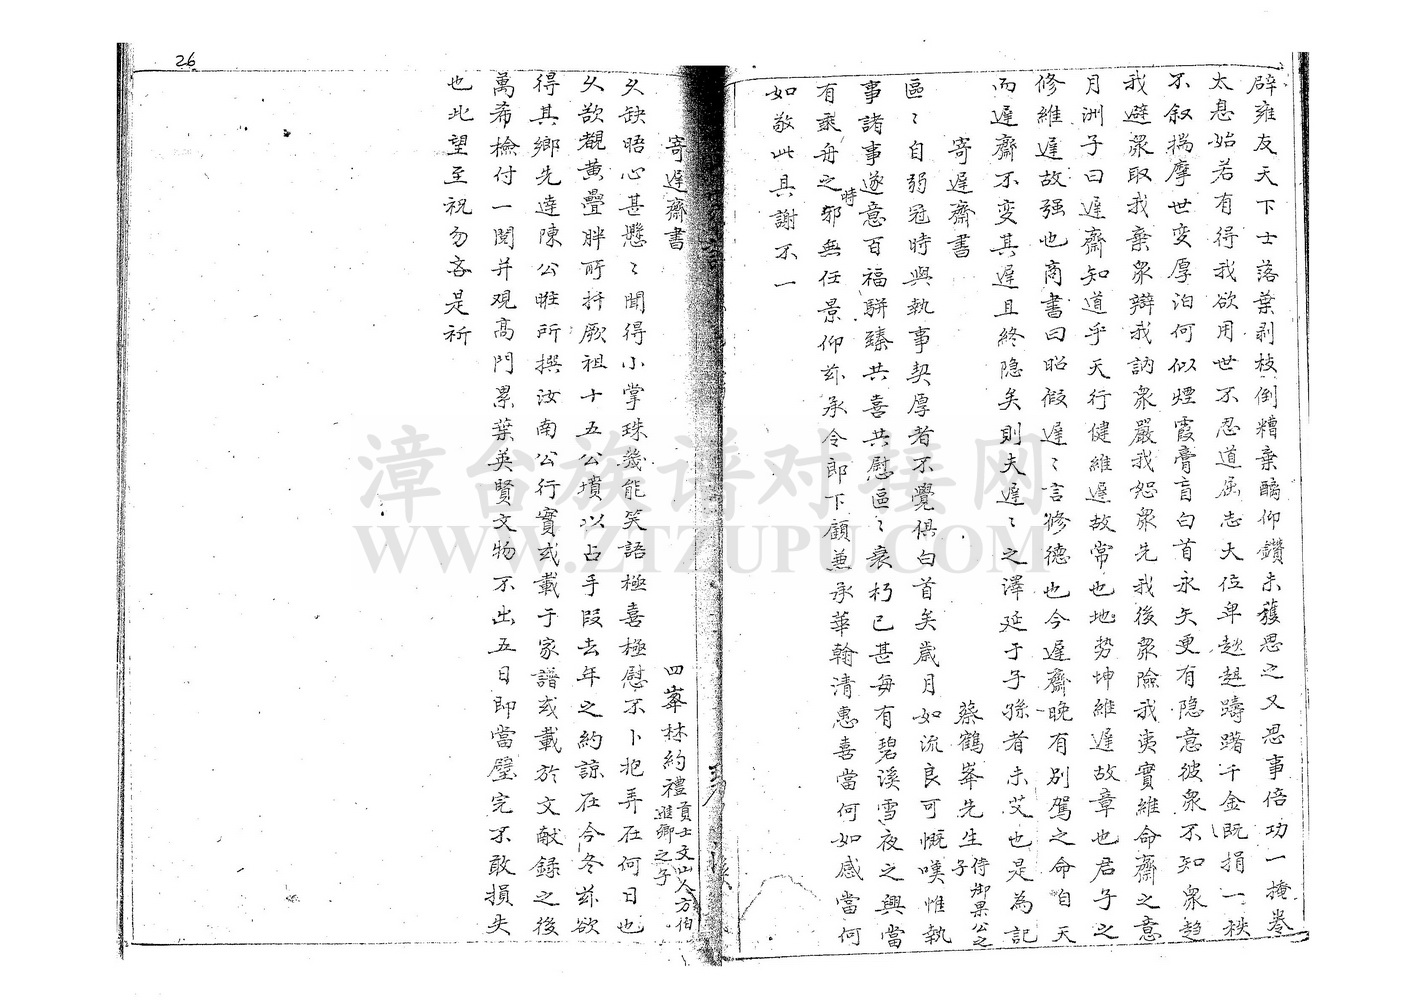 辟雍友天下士落葉剥枝倒糟棄醨仰鑽未獲思之又思事倍功一掩卷
太息始若有得我欲用世不忍道屈志大位卑趑趄躊躇千金既捐一秩
不叙揣摩世变厚泊何似煙霞膏肓白首永矢更有隐意彼衆不知衆趋
我避衆取我棄衆辯我訥衆嚴我恕衆先我後衆險我夷實維命齋之意
月洲子曰遲齋知道乎天行健維遲故常也地势坤維遲故章也君子之
修維遲故强也商書曰昭假遲〻言修德也今遲齋晚有别駕之命自天
而遲齋不变其遲且終隐矣則夫遲〻之澤延于子孫者未艾也是為記
寄遲齋書
蔡鶴峯先生侍御果公之子
區〻自弱冠時與執事契厚者不覺俱白首矣歲月如流良可慨嘆惟執
事諸事遂意百福駢臻共喜共慰區〻衰朽已甚每有碧溪雪夜之興當
有乘舟之時邪無任景仰玆承令郎下顧兼承華翰清惠喜當何如感當何
如敬此具謝不一
寄遲齋書
四峯林約禮貢士文山人方伯進卿之子
久缺晤心甚懸〻聞得小掌珠幾能笑語極喜極慰不卜圯弄在何日也
久欲覩黄疊胖所扦厥祖十五公墳以占手段去年之約諒在今冬玆欲
得其鄉先達陳公睢所撰汝南公行實或載于家譜或載於文献錄之後
萬希檢付一閱并观高門累葉英賢文物不出五日即當璧完不敢損失
也此望至祝勿吝是祈
26
漳台族谱对接网
WWW.ZTZUPU.COM